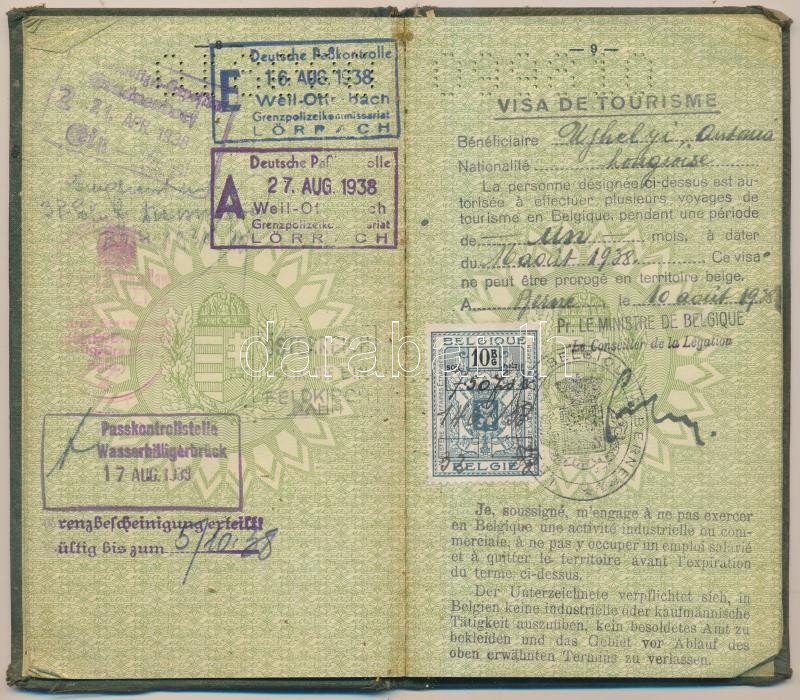 — 8
Deutsche Paßkontrolle
E 16. AUG. 1938
Weil-Ott bach
Grenzpolizeikommissariat
LÖRRACH
2 21. APR. 1938
Deutsche Paß olle
A 27. AUG. 1938
Weil-Ott ch
Grenzpolizeiko ariat
LÖRR CH
FELDKIRCH
Passkontrollstelle
Wasserbilligerbrück
17 AUG. 1938
renzbescheinigung erteilt
ültig bis zum 5/10.38
— 9 —
VISA DE TOURISME
Bénéficiaire Ujhelyi, Antonia
Nationalité hongroise
La personne désignée ci-dessus est au-
torisée à effectuer plusieurs voyages de
tourisme en Belgique, pendant une période
de — un — mois, à dater
du 16 août 1938. Ce visa
ne peut être prorogé en territoire belge.
A Berne le 10 août 1938
Pr. LE MINISTRE DE BELGIQUE
Le Conseiller de la Légation
BELGIQUE
10 B G
BELGIË
BELGIQUE BERNE
darabanth
Je, soussigné, m'engage à ne pas exercer
en Belgique une activité industrielle ou com-
merciale, à ne pas y occuper un emploi salarié
et à quitter le territoire avant l'expiration
du terme ci-dessus.
Der Unterzeichnete verpflichtet sich, in
Belgien keine industrielle oder kaufmännische
Tätigkeit auszuüben, kein besoldetes Amt zu
bekleiden und das Gebiet vor Ablauf des
oben erwähnten Termins zu verlassen.